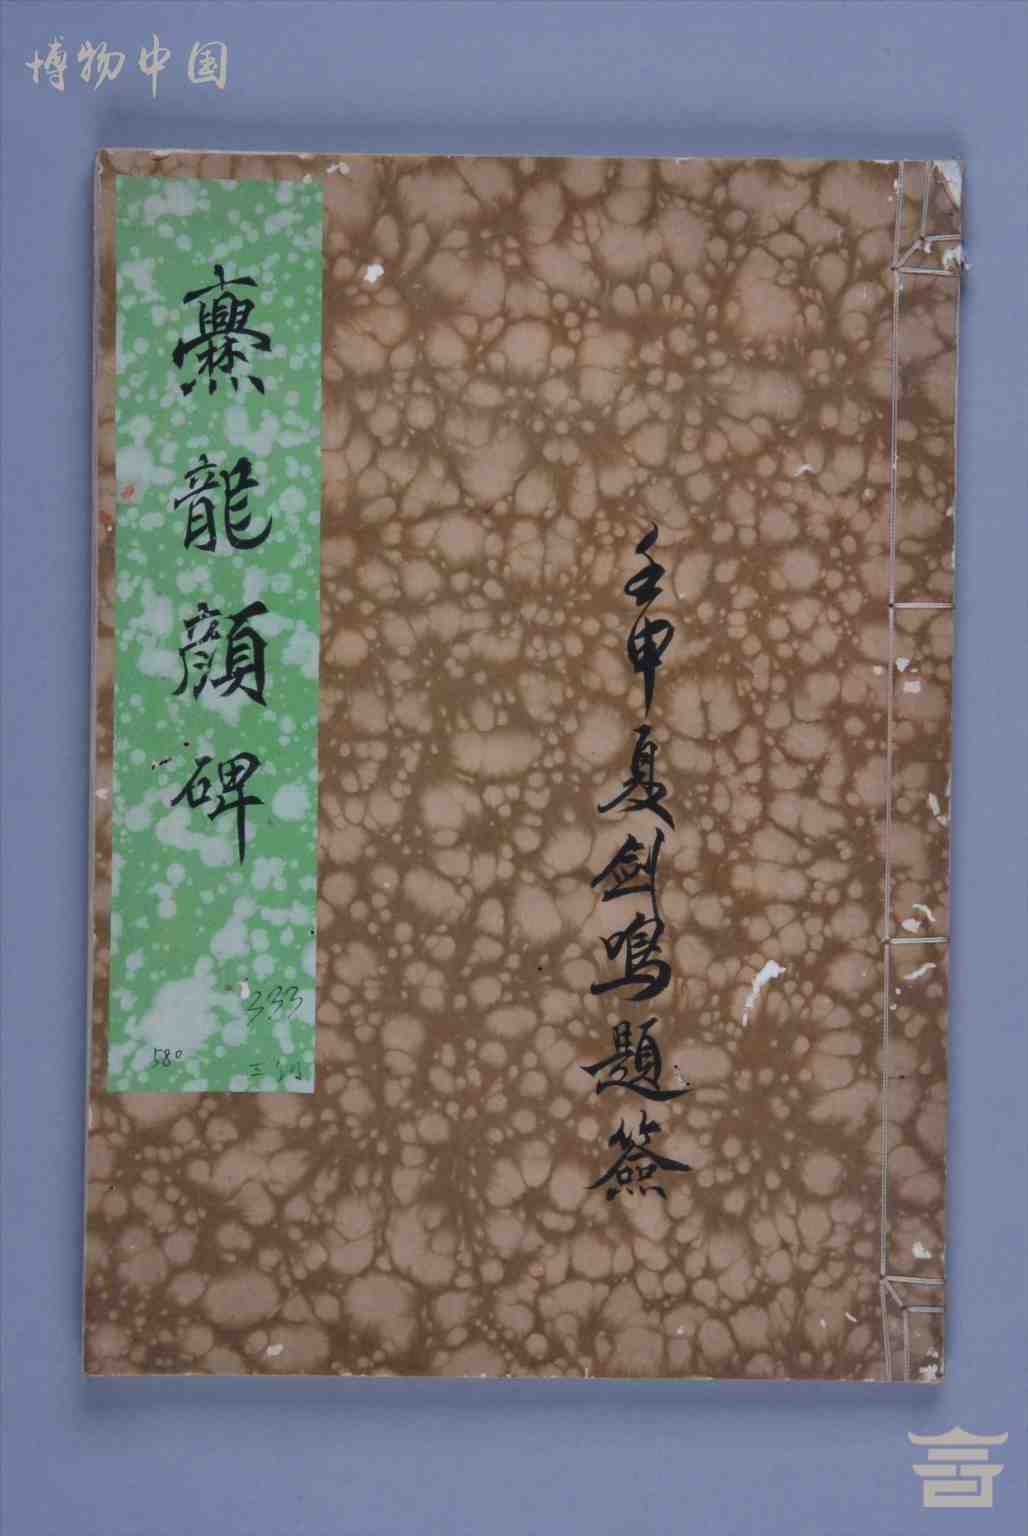 博物中国
爨龍顏碑
333
580
壬申夏劍鳴題簽